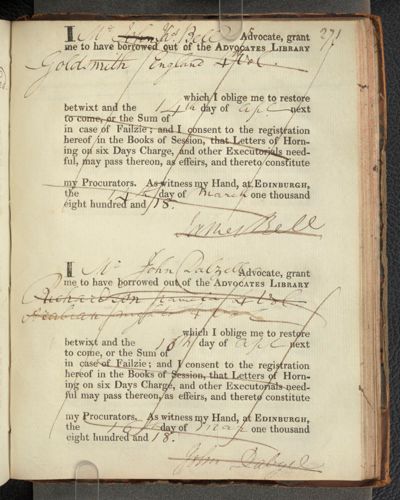 271
I Mr Bell Advocate, grant
me to have borrowed out of the ADVOCATES LIBRARY
Goldsmith England 4 Vol.
which I oblige me to restore
betwixt and the 14th day of apl next
to come, or the Sum of
in case of Failzie; and I consent to the registration
hereof in the Books of Session, that Letters of Horn-
ing on six Days Charge, and other Executorials need-
ful, may pass thereon, as effeirs, and thereto constitute
my Procurators. As witness my Hand, at EDINBURGH,
the 14th day of March one thousand
eight hundred and 18.
James Bell
I Mr John Dalzell Advocate, grant
me to have borrowed out of the ADVOCATES LIBRARY
Richardson 4 Vol
Arabian
which I oblige me to restore
betwixt and the 16th day of apl next
to come, or the Sum of
in case of Failzie; and I consent to the registration
hereof in the Books of Session, that Letters of Horn-
ing on six Days Charge, and other Executorials need-
ful may pass thereon, as effeirs, and thereto constitute
my Procurators. As witness my Hand, at EDINBURGH,
the 16th day of Mar one thousand
eight hundred and 18.
John Dalzell